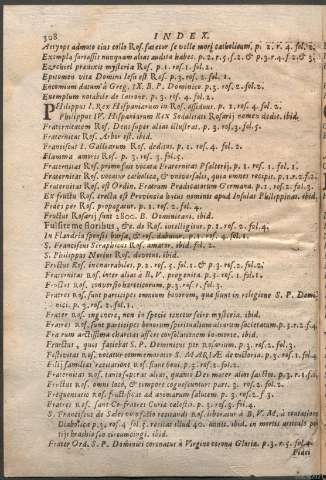 308 INDEX.
Aetyops admoto eius collo Ros. fatetur se velle mori catholicum, p. 2. r. 4. fol. 2.
Exempla fortassis nunquam alias audita habes. p. 2. r. 5. f. 2. & p. 3. r. 4. f. 2 & 3.
Ezechiel praeuisit mysteria Ros. p. 1. ros. 1. fol. 2.
Epitomen vita Domini Iesu est Ros. p. 3. ros. 2. fol. 1.
Encomium datum à Greg. IX. B. P. Dominico p. 3. ros. 2. fol. 2.
Exemplum notabile de latrone. p. 3. ros. 4. fol. 2.
PHilippus I. Rex Hispaniarum in Ros. assiduus. p. 1. ros. 4. fol. 2.
Philippus IV. Hispaniarum Rex Sodalitati Rosarij nomen dedit. ibid.
Fraternitatem Ros. Deus super alias illustrat. p. 3. ros. 3. fol. 5.
Fraternitas Ros. Arbor est. ibid.
Franciscus I. Galliarum Ros. deditus. p. 1. ros. 4. fol. 2.
Flamma amoris Ros. p. 3. ros. 3. fol. 5.
Fraternitas Ros. primo fuit vocata Fraternitas Psalterij. p. 1. ros. 1. fol. 1.
Fraternitas Ros. vocatur catholica, & vniuersalis, quia omnes recipit. p. 1. r. 2. f. 2.
Fraternitas Ros. est Ordin. Fratrum Praedicatorum Germana. p. 1. ros. 2. fol. 3.
Ex fructu Ros. erecta est Prouincia huius nominis apud Insulas Philippinas. ibid.
Fides per Ros. propagatur. p. 1. ros. 2. fol. 4.
Fructus Rosarij sunt 2800. B. Dominicani. ibid.
Fulcite me floribus, &c. de Ros. intelligitur. p. 1. ros. 2. fol. 4.
In Flandria sponsis bursa, & ros. dabatur. p. 1. ros. 4. fol. 1.
S. Franciscus Seraphicus Ros. amator. ibid. fol. 2.
S. Philippus Nerius Ros. deuotus. ibid.
Fructus Ros. inenarrabiles. p. 2. ros. 3. fol. 1. & p. 3. ros. 2. fol. 2.
Fraternitas Ros. inter alias à B. V. progenita. p. 3. ros. 1. fol. 1.
Fructus Ros. conuersio haereticorum. p. 3. ros. 1. fol. 3.
Fratres Ros. sunt participes omnium bonorum, quae fiunt in religione S. P. Domi-
nici. p. 3. ros. 2. fol. 1.
Frater Ros. ingenuus, in hoc quod non tenetur scire mysteria. ibid.
Fratres Ros. sunt participes bonorum spiritualium aliarum societatum. p. 3. r. 2. f. 4.
Fratrum arctissima charitas affert consolationem in morte. ibid.
Fructus, quos faciebat S. P. Dominicus per Rosarium. p. 3. ros. 2. fol. 3.
Festiuitas Ros. vocatur commemoratio S. MARIAE de victoria. p. 3. ros. 1. fol. 4.
Filij familias recitantes Ros. fiunt boni. p. 3. ros. 2. fol. 1.
Fraternitas Ros. tanto superat alias, quanto Dei mater alios sanctos. p. 3. r. 1. f. 4.
Fructus Ros. omni loco, & tempore cognoscuntur. part. 3. ros. 2. fol. 2.
Frequentatio Ros. fructificat ad animarum salutem. p. 3. ros. 2. f. 3.
Fratres Ros. sunt Co-fratres Curiae caelestis. p. 3. ros. 3. fol. 4.
S. Franciscus de Sales ex ... recitandi Ros. liberatur à B. V. M. à tentatione
Diabolica p. 3. ros. 4. fol. 3. recitat illud 40. annis. ibid. in mortis articulo pe-
tijt brachio suo circumcingi. ibid.
Frater Ord. S. P. Dominici coronatur à Virgine corona Gloria. p. 3. r. 5. fol. 4.
Fidei